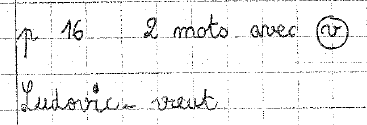 p 16 2 mots avec v
Ludovic - veut